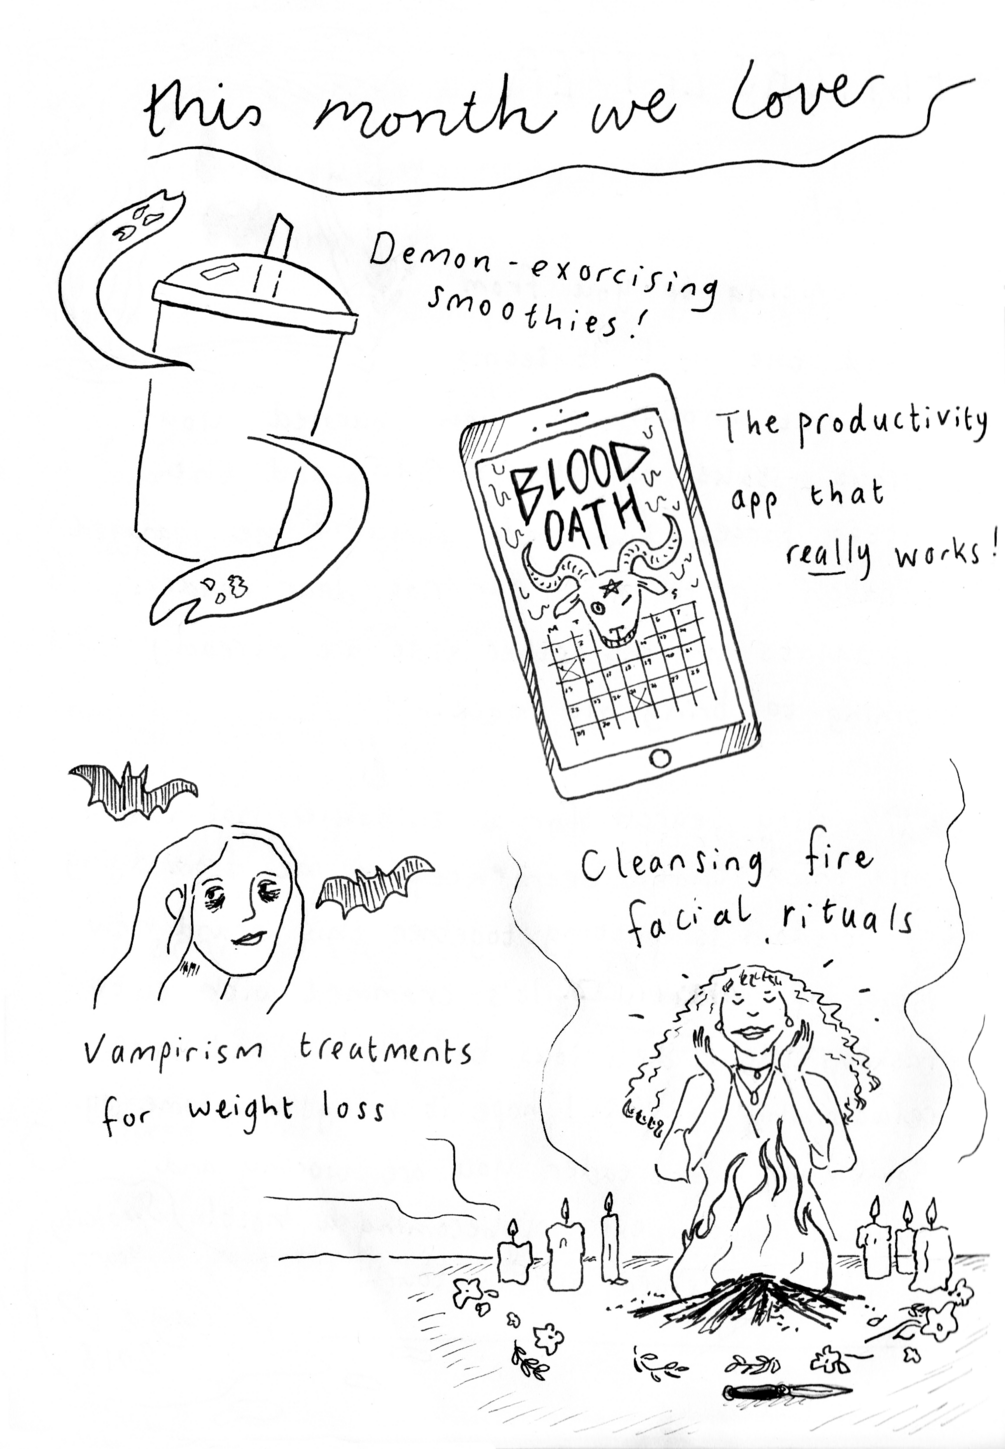 this month we love
Demon-exorcising
smoothies!
The productivity
app that
really works!
BLOOD
OATH
Cleansing fire
facial rituals
Vampirism treatments
for weight loss